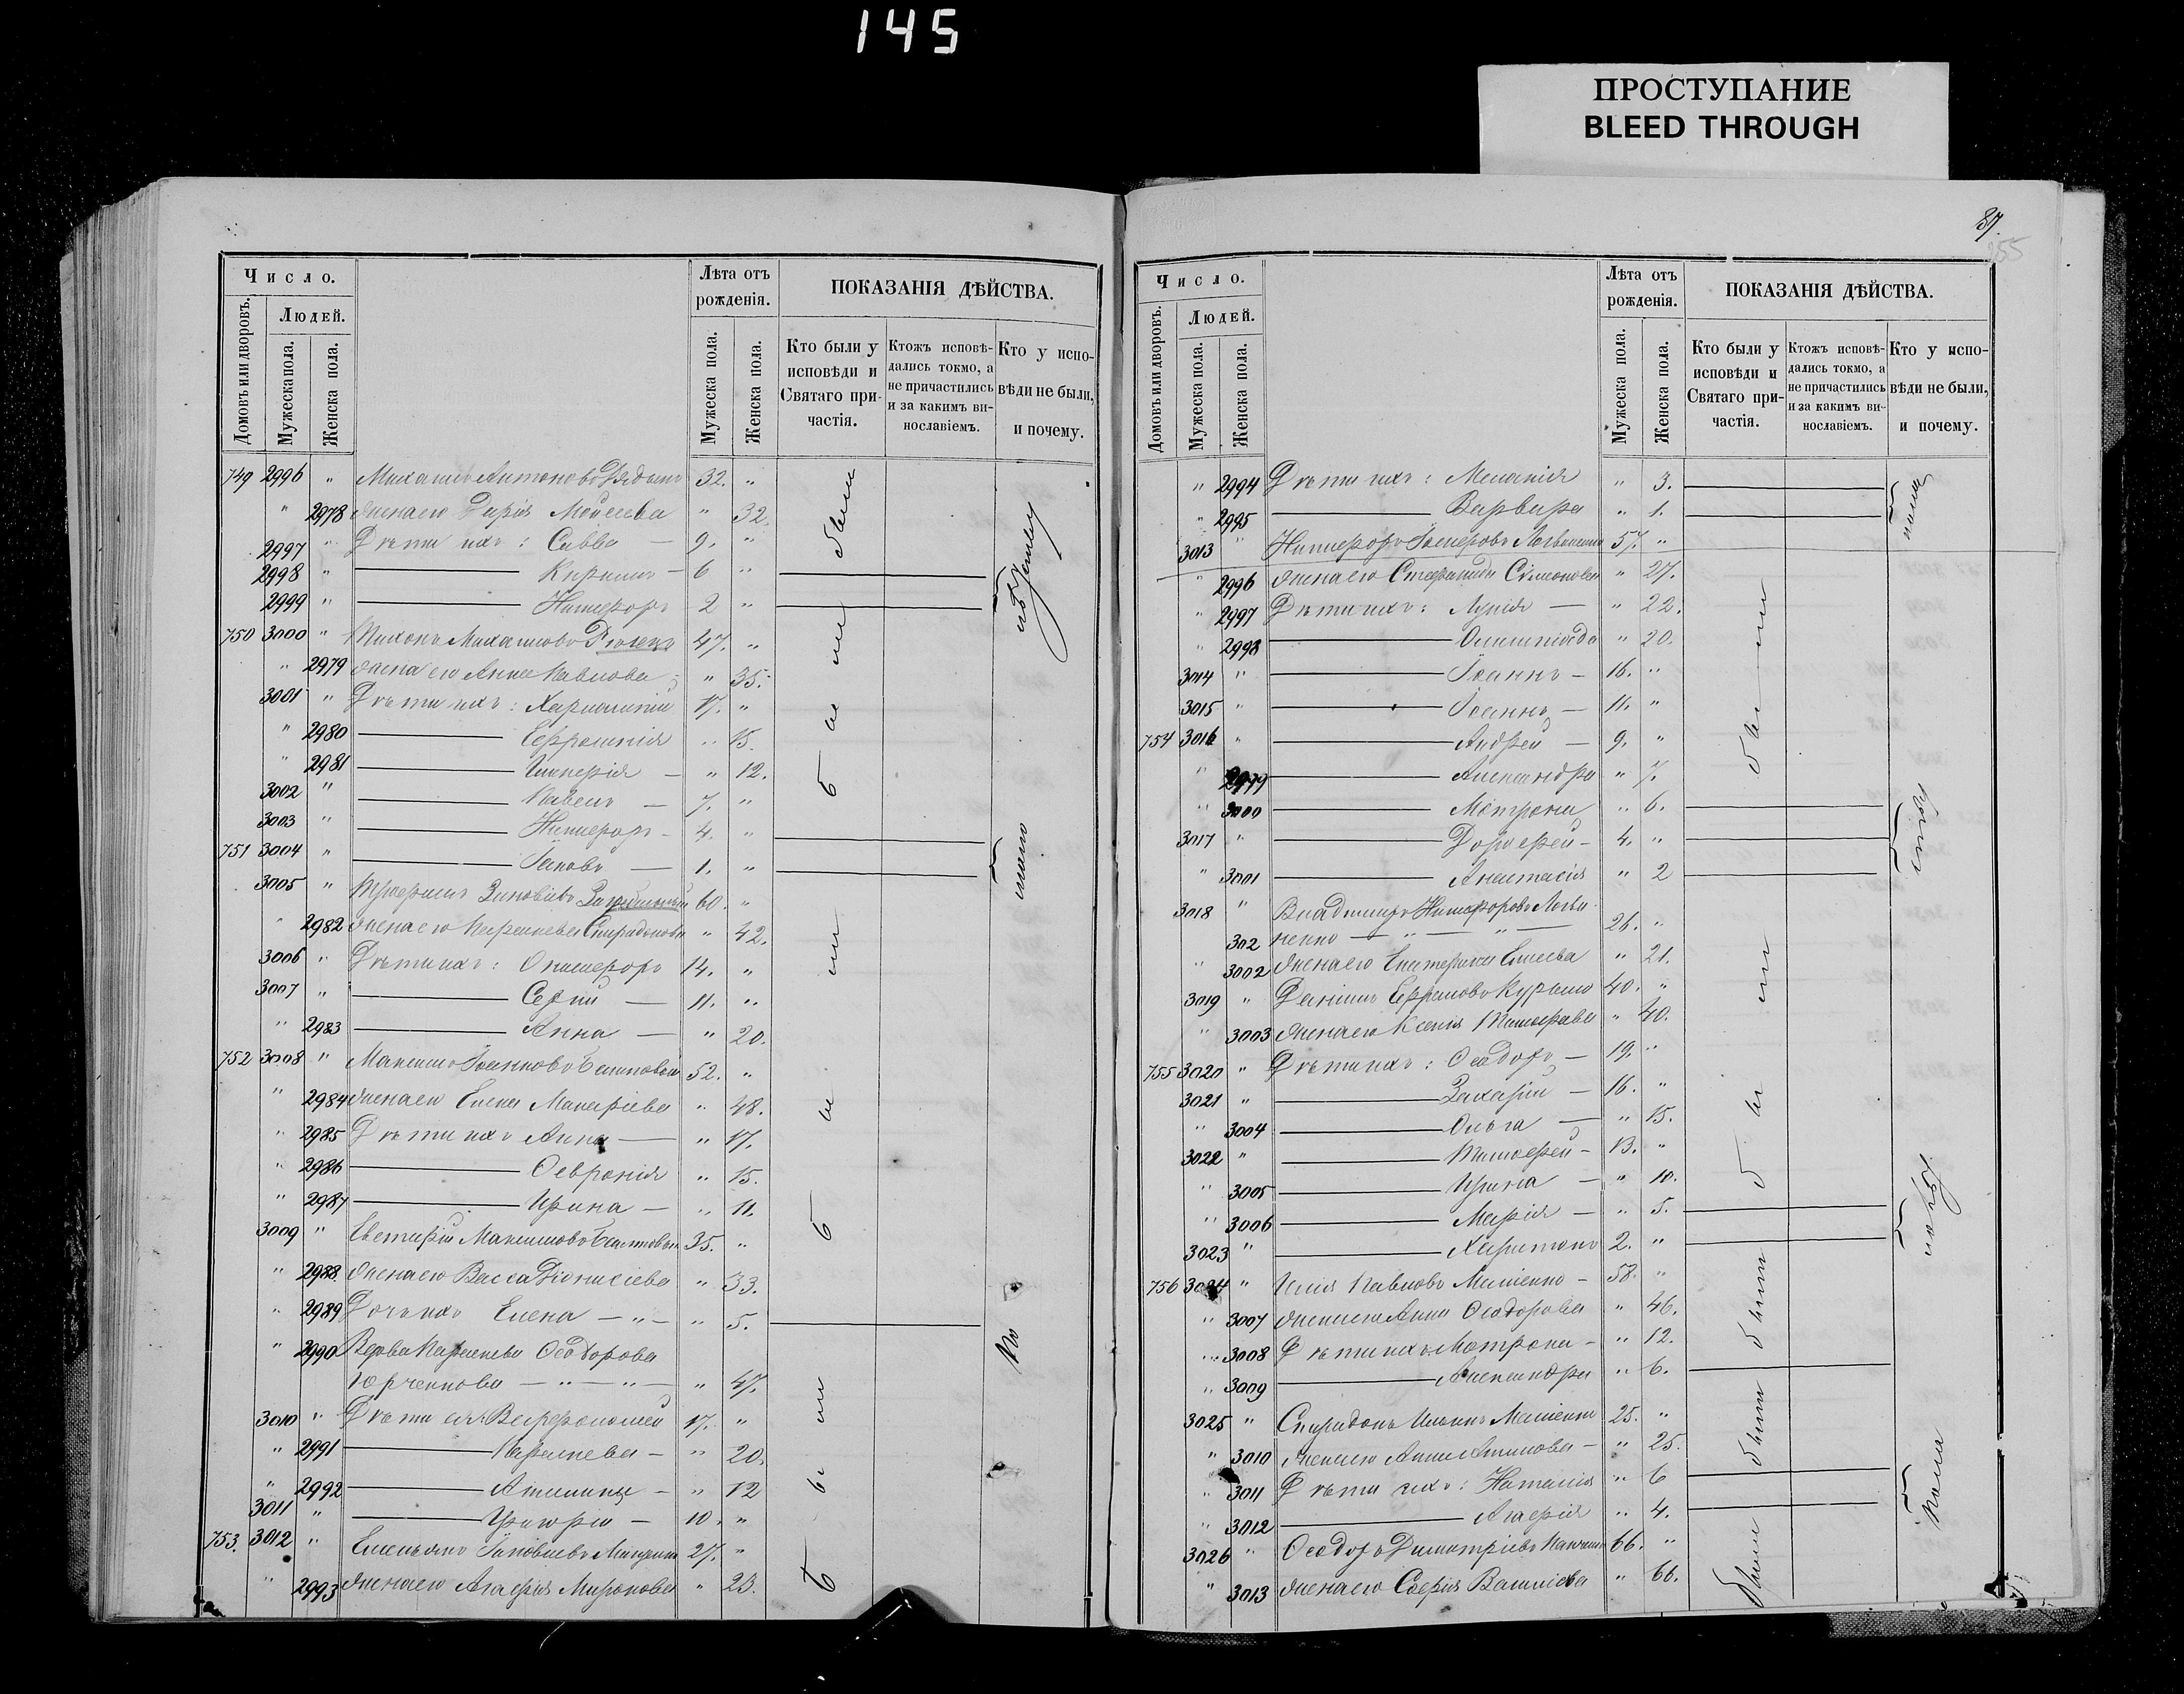 145
ПРОСТУПАНИЕ
BLEED THROUGH
Число.
Лѣта отъ рожденія.
ПОКАЗАНІЯ ДѢЙСТВА.
Домовъ или дворовъ.
Людей.
Мужеска пола.
Женска пола.
Мужеска пола.
Женска пола.
Кто были у исповѣди и Святаго причастія.
Ктожъ исповѣдались токмо, а не причастились и за какимъ винославіемъ.
Кто у исповѣди не были, и почему.
749 2996 " Михаилъ Антоновъ 32. "
" 2978 жена его Дарія Моисеева " 32.
2997 " Дѣти ихъ: Савва — 9. "
2998 " — Кириллъ — 6 "
2999 " — Никифоръ 2 "
750 3000 " Тихонъ Михаиловъ 47. "
" 2979 жена его Анна Павлова " 35.
3001 " Дѣти ихъ: Харлампій 17. "
" 2980 — Евфросинія " 15.
" 2981 — Гликерія — " 12.
3002 " — Павелъ — 7. "
3003 " — Никифоръ — 4. "
751 3004 " — Іаковъ — 1. "
3005 " Трофимъ Зиновіевъ 60. "
" 2982 жена его Параскева Спиридонова " 42.
3006 " Дѣти ихъ: Онисифоръ 14. "
3007 " — Сергій — 11. "
" 2983 — Анна — " 20.
752 3008 " Максимъ Іоанновъ 52. "
" 2984 жена его Елена Макаріева " 48.
" 2985 Дѣти ихъ Анна — " 17.
" 2986 — Ѳевронія " 15.
" 2987 — Ирина — " 11.
3009 " Евстафій Максимовъ 35. "
" 2988 жена его Васса Діонисіева " 33.
" 2989 Дочь ихъ Елена — " — " 5.
" 2990 Вдова Параскева Ѳеодорова
Юрченкова — " — " — " 47.
3010 " Дѣти ея: Варфоломей 17. "
" 2991 — Параскева — " 20.
" 2992 — Акилина — " 12
3011 " — Григорій — 10. "
753. 3012 " Емельянъ Іаковлевъ 27. "
" 2993 жена его Агафія Миронова " 25.
87.
255
Число.
Лѣта отъ рожденія.
ПОКАЗАНІЯ ДѢЙСТВА.
Домовъ или дворовъ.
Людей.
Мужеска пола.
Женска пола.
Мужеска пола.
Женска пола.
Кто были у исповѣди и Святаго причастія.
Ктожъ исповѣдались токмо, а не причастились и за какимъ винославіемъ.
Кто у исповѣди не были, и почему.
" 2994 Дѣти ихъ: Меланія " 3.
" 2995 — Варвара " 1.
3013 " Никифоръ 57. "
" 2996 жена его Стефанида Сѵмеонова " 27.
" 2997 Дѣти ихъ: — " 22.
" 2998 — Олимпіада " 20.
3014 " — Іоаннъ — 16. "
3015 " — Іоаннъ — 11. "
754 3016 " — Андрей — 9. "
" 2999 — Александра " 7.
" 3000 — Мотрона " 6.
3017 " — Дорофей — 4. "
" 3001 — Анастасія " 2
3018 " Владимиръ Никифоровъ
ненко — " — " — 26. "
302
" 3002 жена его Екатерина " 21.
3019 " Даніилъ Ефремовъ 40. "
" 3003 жена его Ксенія Тимофеева " 40.
755 3020 " Дѣти ихъ: Ѳеодоръ — 19. "
3021 " — Захарій — 16. "
" 3004 — Ольга — " 15.
3022 " — Тимофей — 13. "
" 3005 — Ирина — " 10.
" 3006 — Марія — " 5.
3023 " — Харитонъ 2. "
756 3024 " Илія Павловъ — 58. "
" 3007 жена его Анна Ѳеодорова " 46.
" 3008 Дѣти ихъ: Мотрона — " 12.
" 3009 — Александра " 6.
3025 " Спиридонъ Ильинъ 25. "
" 3010 жена его Анна — " 25.
" 3011 Дѣти ихъ: Наталія " 6
" 3012 — Агафія " 4.
3026 " Ѳеодоръ Димитріевъ 66. "
" 3013 жена его Софія Василіева " 66.